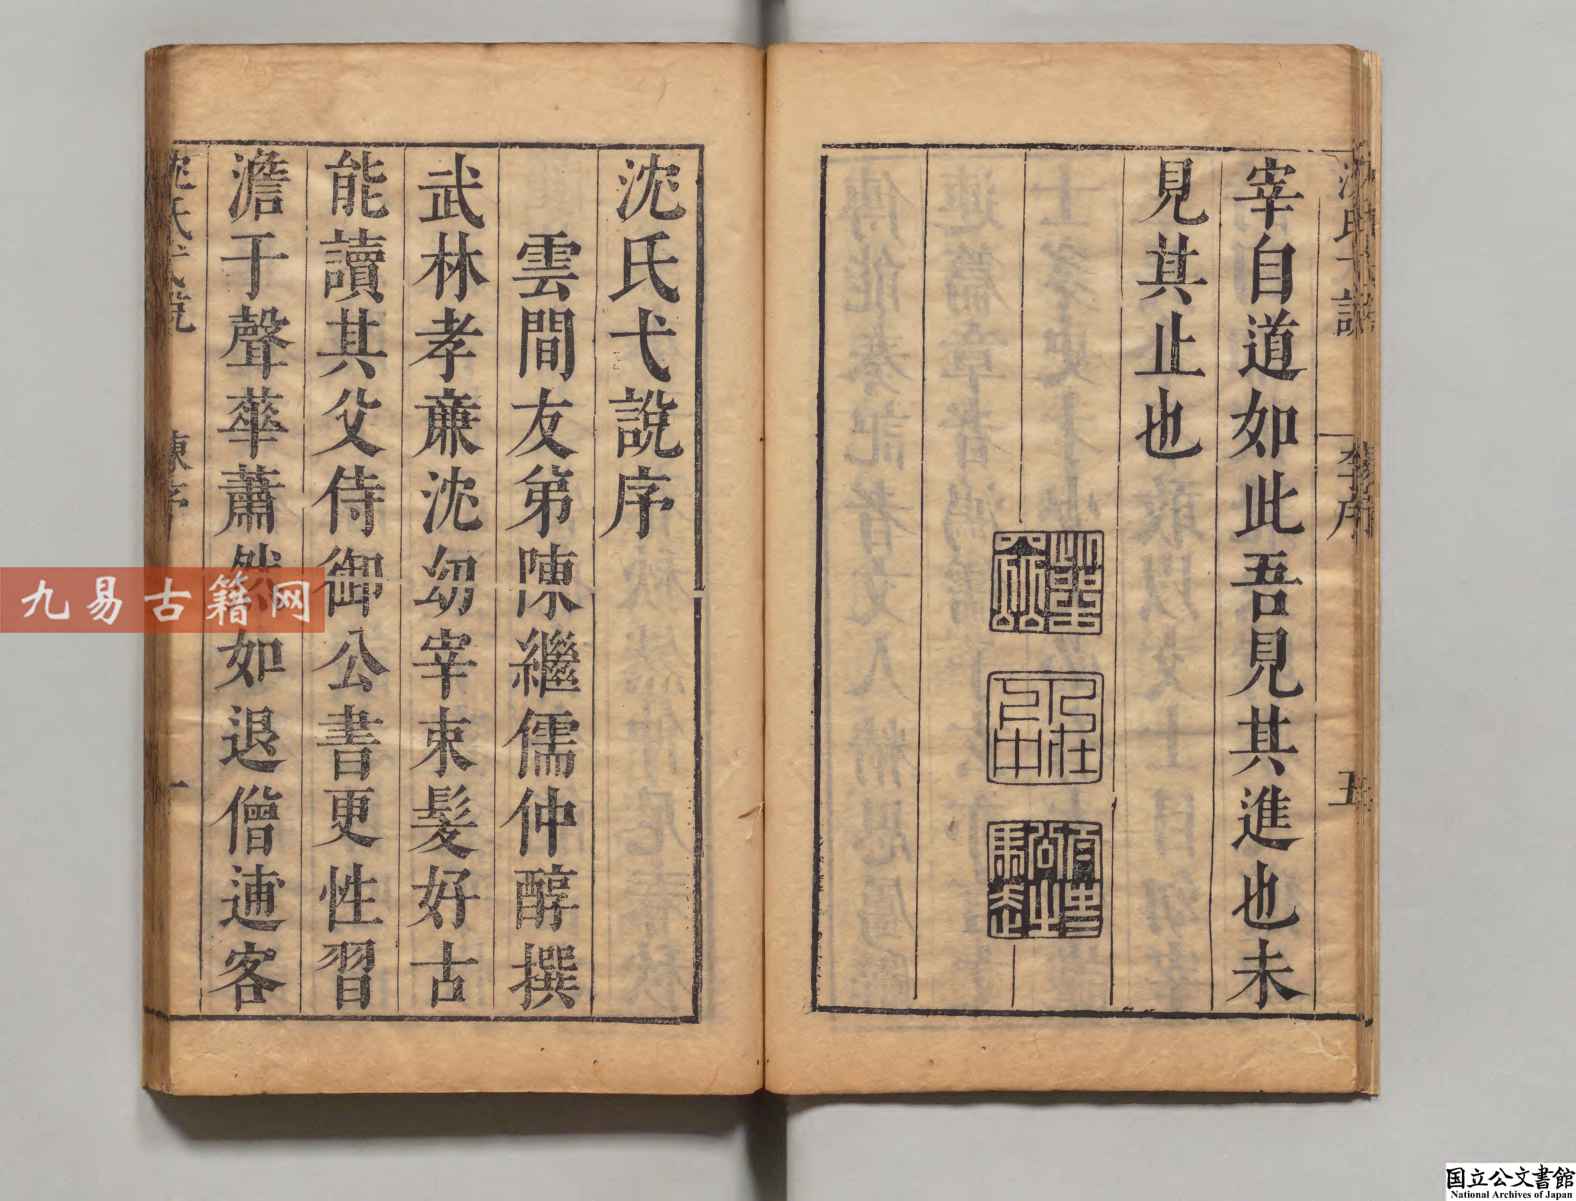 宰自道如此吾見其進也未
見其止也
沈氏弋說序
雲間友弟陳繼儒仲醇撰
武林孝亷沈幼宰束髮好古
能讀其父侍御公書更性習
澹于聲華蕭然如退僧逋客
五
九易古籍网
国立公文書館
National Archives of Japan